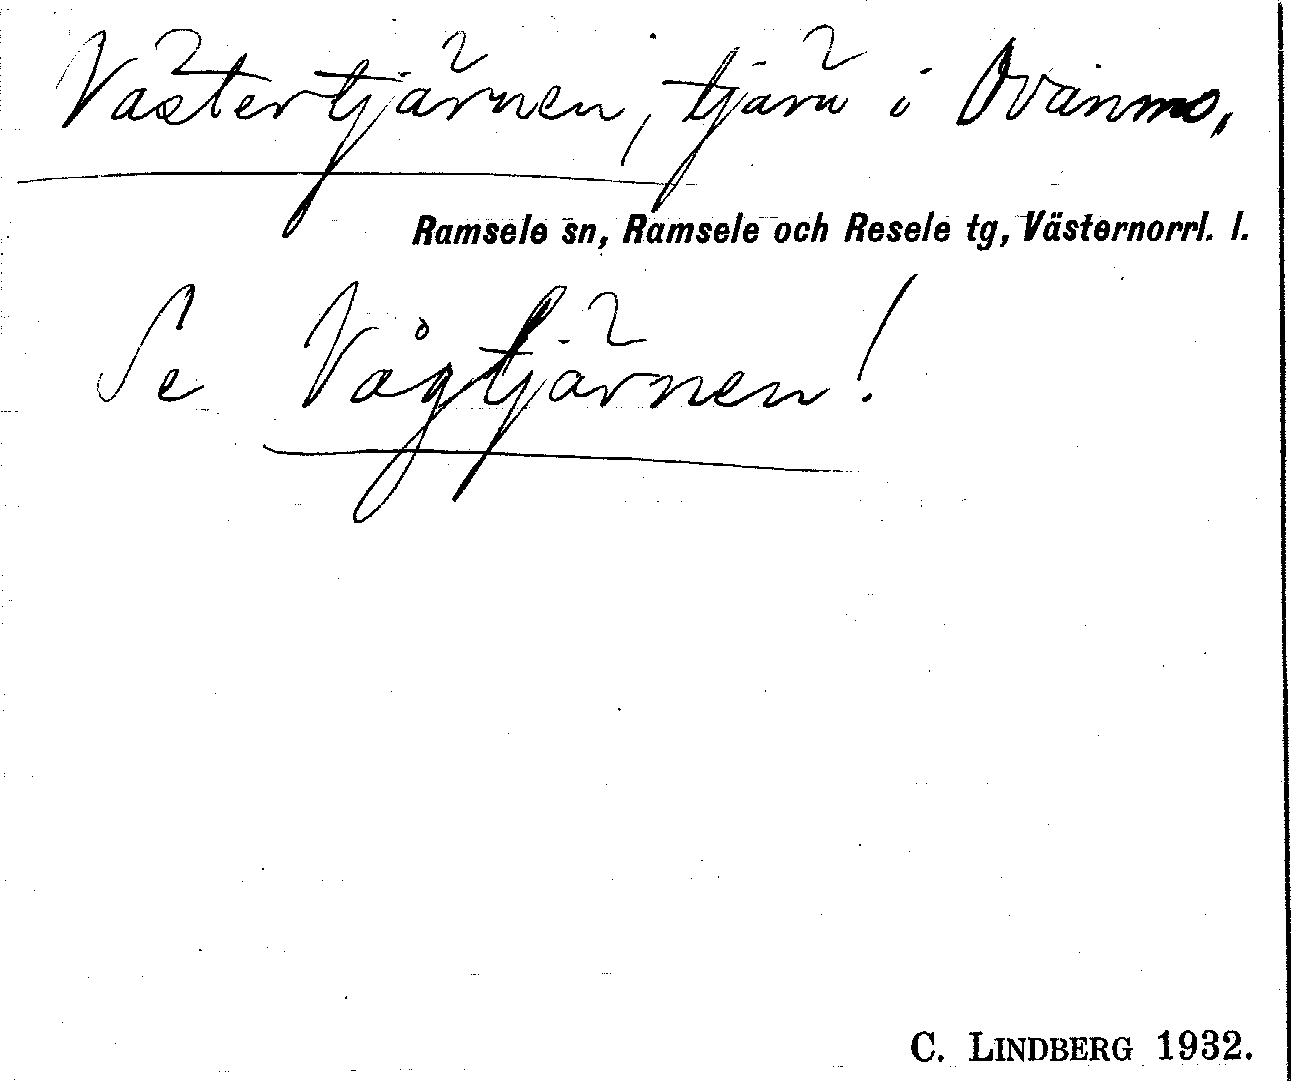 Västertjärnen, tjärn i Ovanmo,
Ramsele sn, Ramsele och Resele tg, Västernorrl. l.
Se Vågtjärnen!
C. LINDBERG 1932.